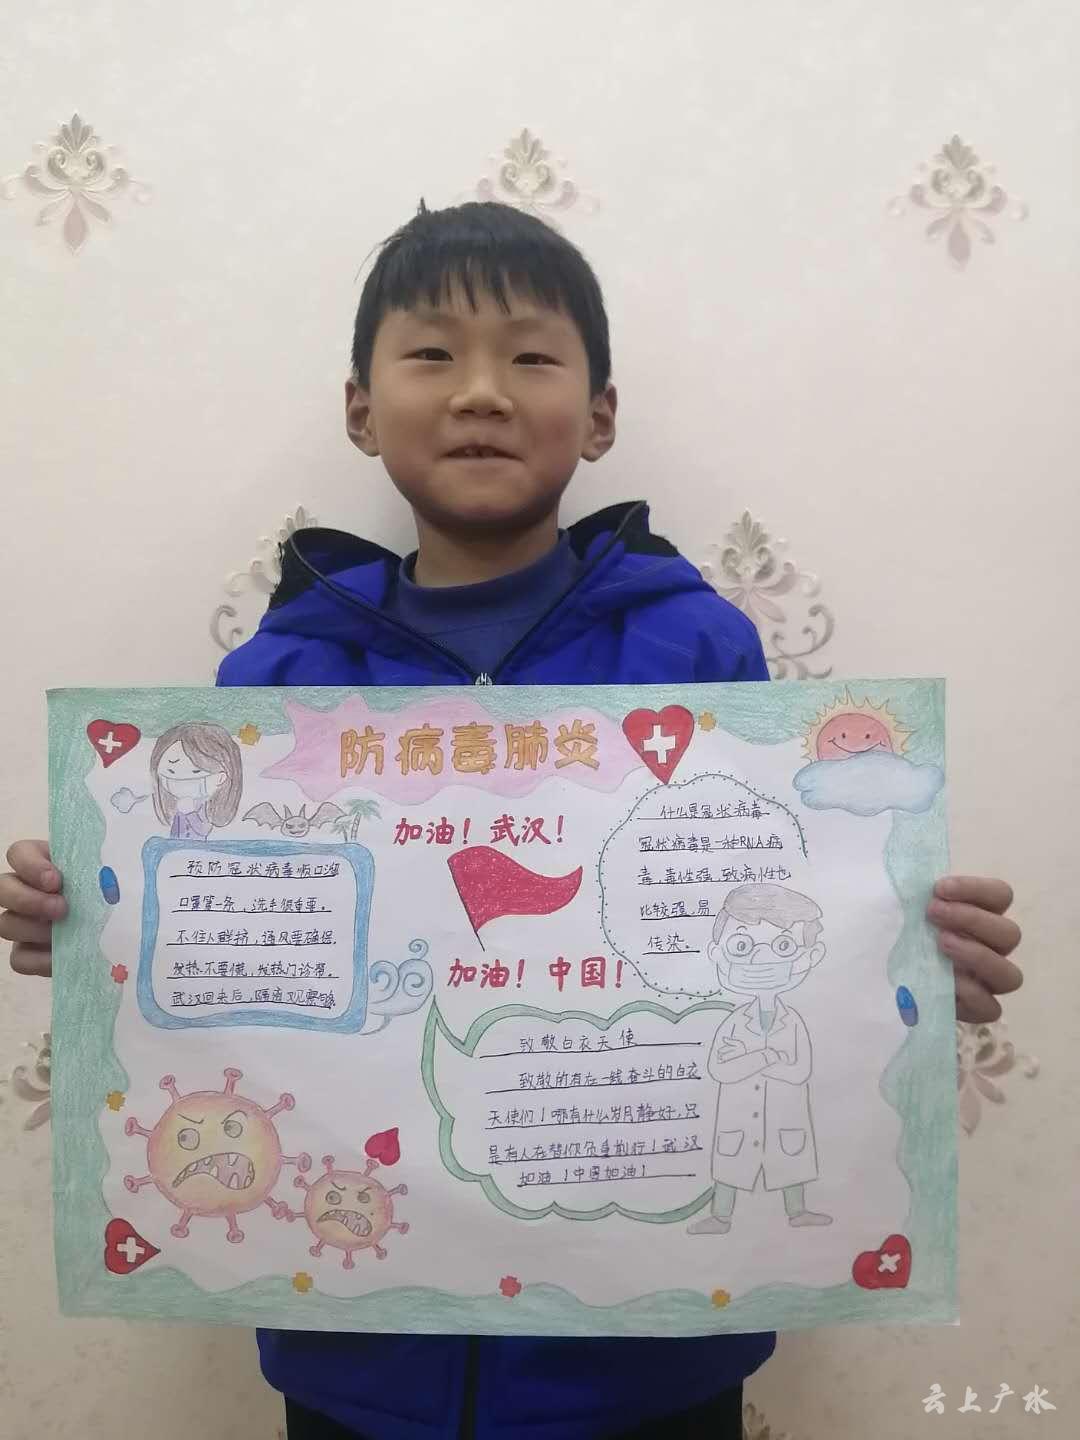 防病毒肺炎
加油！武汉！
加油！中国！
预防冠状病毒顺口溜
口罩第一条，洗手很重要。
不往人群挤，通风要确保。
发热不要慌，发热门诊帮。
武汉回来后，隔离观察够。
什么是冠状病毒
冠状病毒是一种RNA病
毒，毒性强，致病性也
比较强，易
传染。
致敬白衣天使
致敬所有在一线奋斗的白衣
天使们！哪有什么岁月静好，只
是有人在替你负重前行！武汉
加油！中国加油！
云上广水